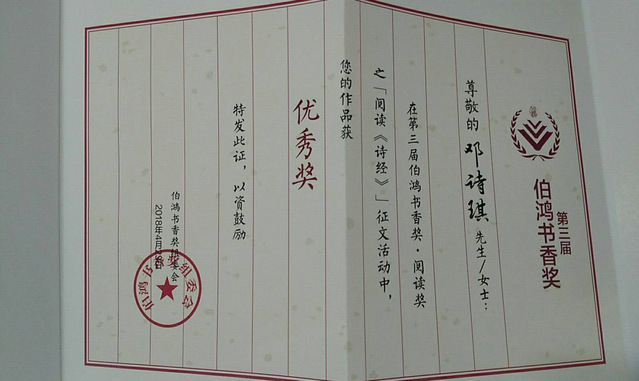 第三届
伯鸿书香奖
尊敬的 邓诗琪 先生/女士:
在第三届伯鸿书香奖·阅读奖
之「阅读《诗经》」征文活动中,
您的作品获
优秀奖
特发此证,以资鼓励
伯鸿书香奖组委会
2018年4月
伯鸿书香奖组委会